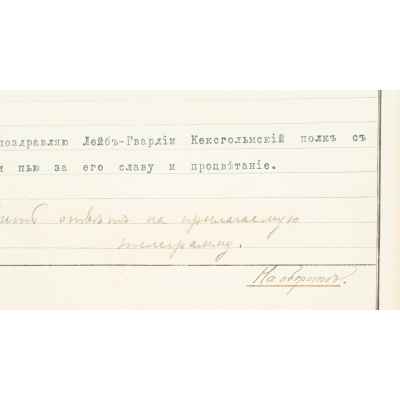 поздравляю Лейбъ-Гвардіи Кексгольмскій полкъ съ
и пью за его славу и процвѣтаніе.
отвѣтъ на прилагаемую
телеграмму.
На оборотѣ.